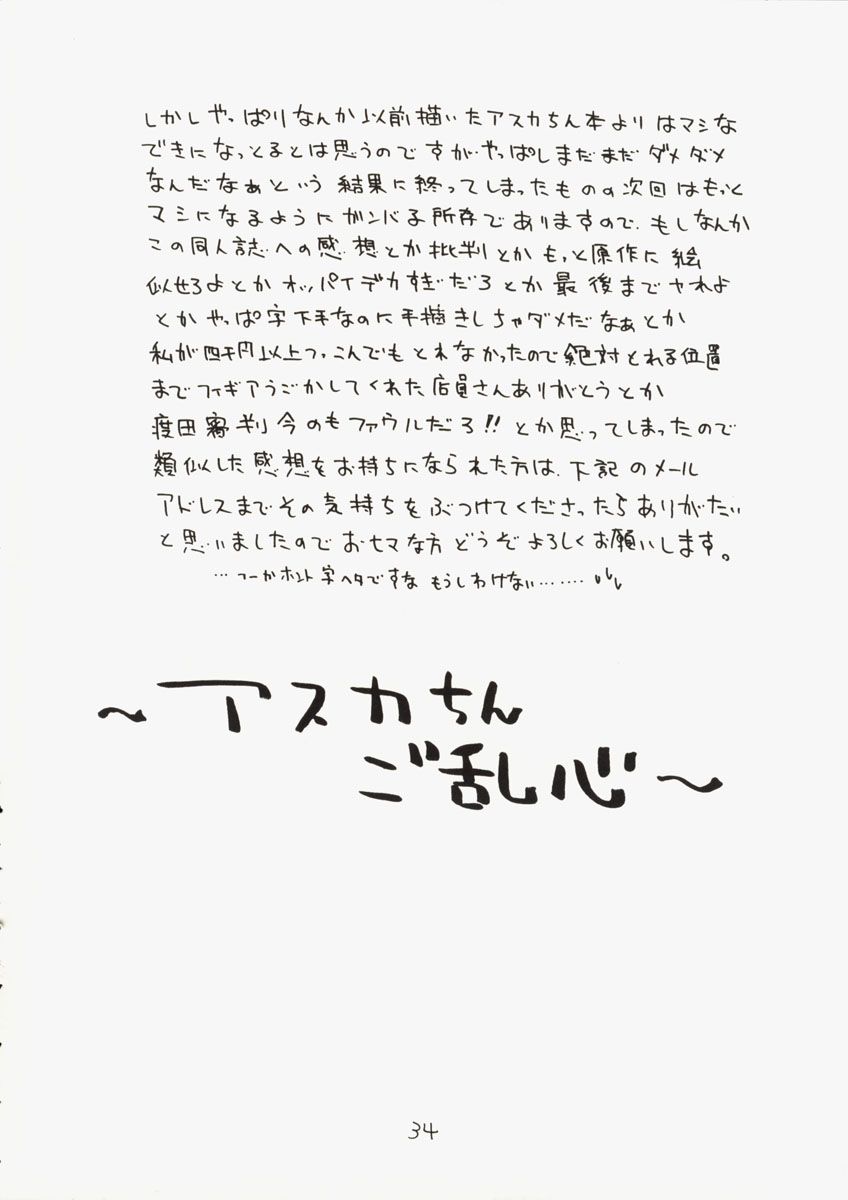 しかしやっぱりなんか以前描いたアスカちん本よりはマシな
できになっとるとは思うのですがやっぱしまだまだダメダメ
なんだなぁという結果に終ってしまったものの次回はもっと
マシになるようにガンバる所存でありますので、もしなんか
この同人誌への感想とか批判とかもっと原作に絵
似せろよとかオッパイデカすぎだろとか最後までヤれよ
とかやっぱ字下手なのに手描きしちゃダメだなぁとか
私が四千円以上つっこんでもとれなかったので絶対とれる位置
までフィギアうごかしてくれた店員さんありがとうとか
渡田審判今のもファウルだろ!!とか思ってしまったので
類似した感想をお持ちになられた方は、下記のメール
アドレスまでその気持ちをぶつけてくださったらありがたい
と思いましたのでおヒマな方どうぞよろしくお願いします。
…つーかホント字ヘタですな もうしわけない……‥
〜アスカちん
ご乱心〜
34